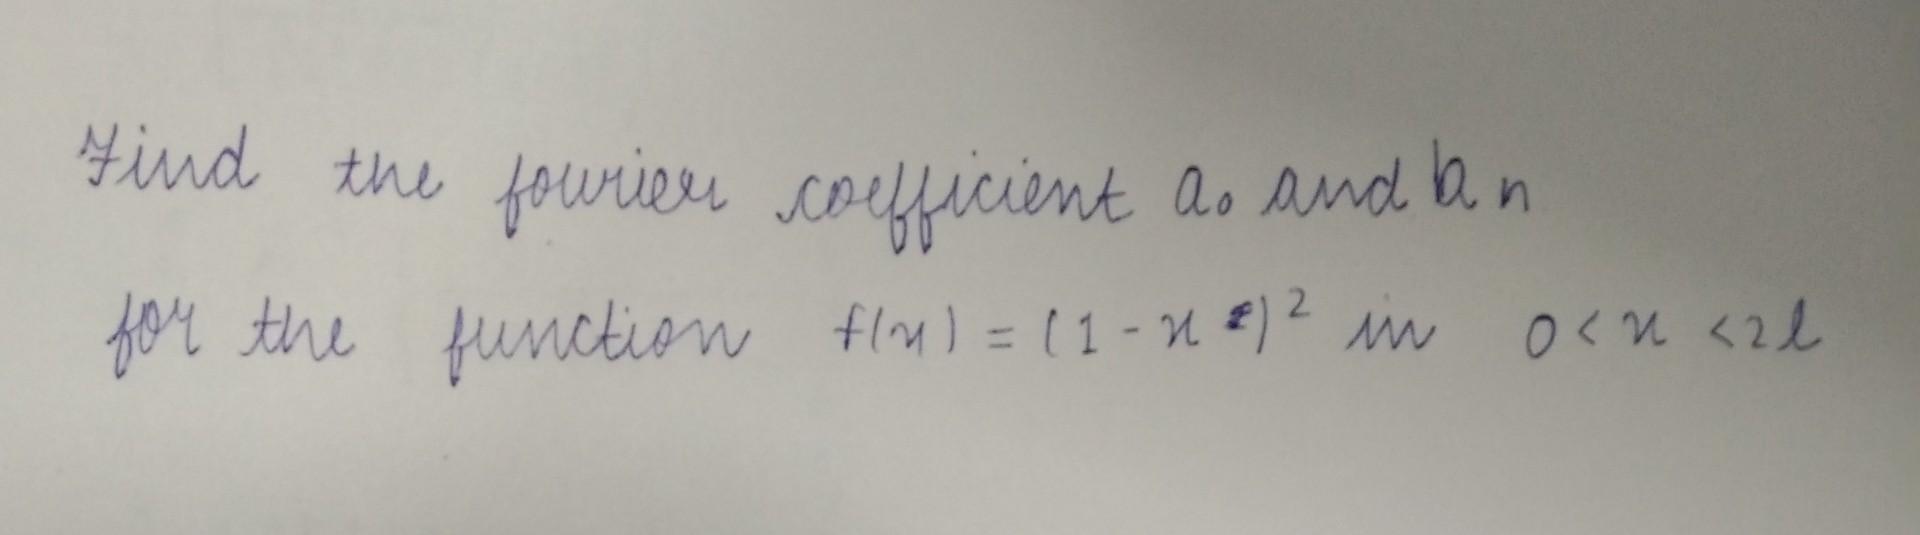 Find the fourier coefficient a₀ and bn
for the function f(x) = (1-x)² in 0<x<2l